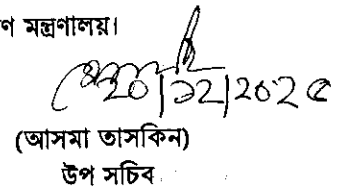 ণ মন্ত্রণালয়।
২০/১২/২০২৫
(আসমা তাসকিন)
উপ সচিব